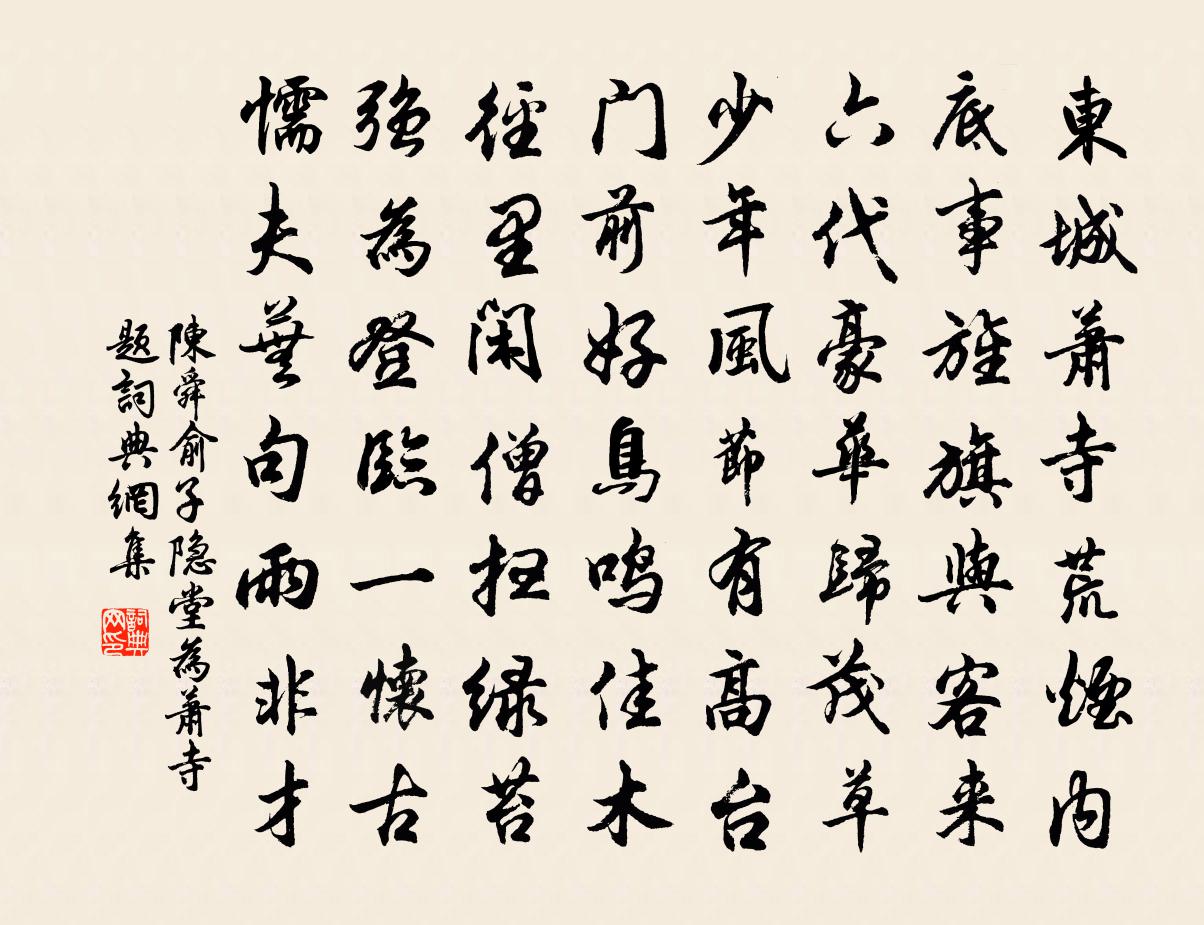 東城蕭寺荒煙內
底事旌旗與客来
六代豪華歸茂草
少年風節有高台
门前好鳥鸣佳木
徑里閑僧扫绿苔
强為登臨一懷古
懦夫蕪句兩非才
陳舜俞子隐堂為蕭寺
题詞典網集
詞典网印